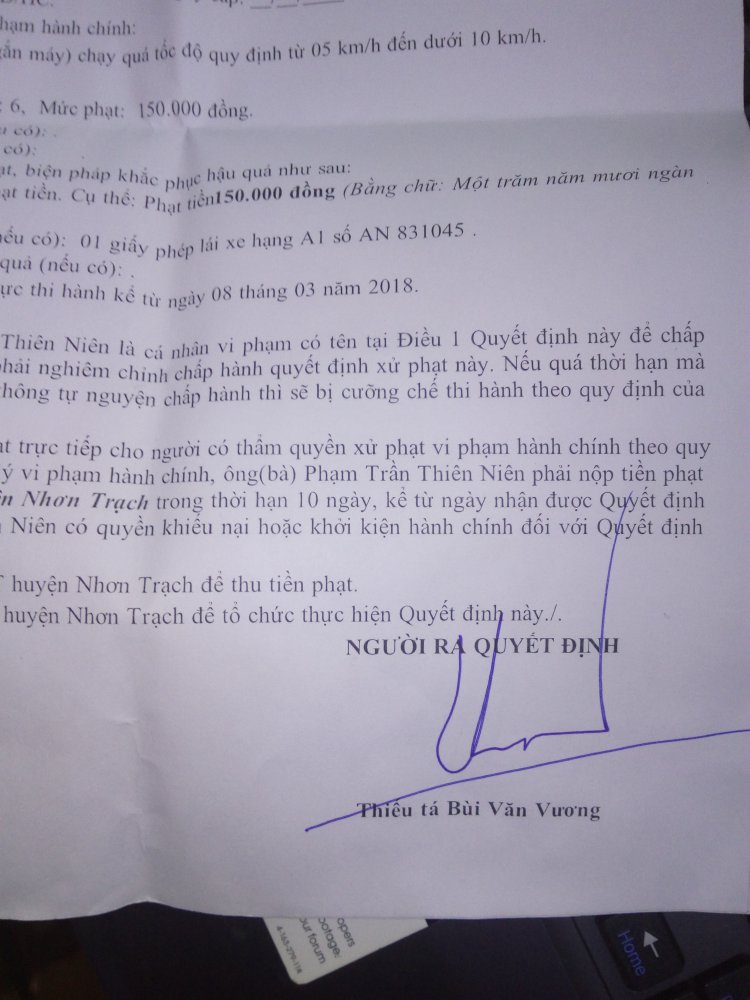 hạm hành chính:
gắn máy) chạy quá tốc độ quy định từ 05 km/h đến dưới 10 km/h.
6, Mức phạt: 150.000 đồng.
có): .
có):
ạt, biện pháp khắc phục hậu quả như sau:
ạt tiền. Cụ thể: Phạt tiền150.000 đồng (Bằng chữ: Một trăm năm mươi ngàn
nếu có): 01 giấy phép lái xe hạng A1 số AN 831045 .
quả (nếu có): .
ực thi hành kể từ ngày 08 tháng 03 năm 2018.
Thiên Niên là cá nhân vi phạm có tên tại Điều 1 Quyết định này để chấp
phải nghiêm chỉnh chấp hành quyết định xử phạt này. Nếu quá thời hạn mà
không tự nguyện chấp hành thì sẽ bị cưỡng chế thi hành theo quy định của
ạt trực tiếp cho người có thẩm quyền xử phạt vi phạm hành chính theo quy
lý vi phạm hành chính, ông(bà) Phạm Trần Thiên Niên phải nộp tiền phạt
ện Nhơn Trạch trong thời hạn 10 ngày, kể từ ngày nhận được Quyết định
Niên có quyền khiếu nại hoặc khởi kiện hành chính đối với Quyết định
huyện Nhơn Trạch để thu tiền phạt.
huyện Nhơn Trạch để tổ chức thực hiện Quyết định này./.
NGƯỜI RA QUYẾT ĐỊNH
Thiếu tá Bùi Văn Vương
opers
ootage,
our forum
4-165-279-11#
Home